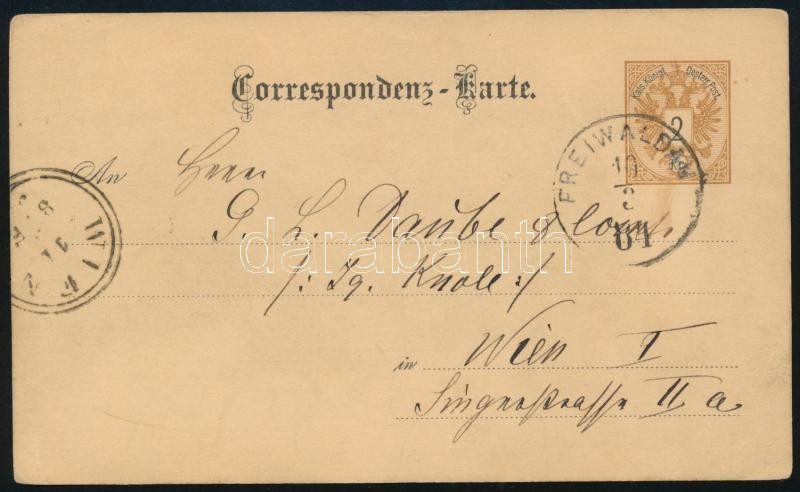 Correspondenz-Karte.
Kais. Königl. Oesterr. Post.
2
FREIWALDAU
10
3
84
WIEN
An Herrn
G. L. Daube & Comp.
/: Ig. Knoll :/
in Wien I
Singerstrasse 11 a
darabanth